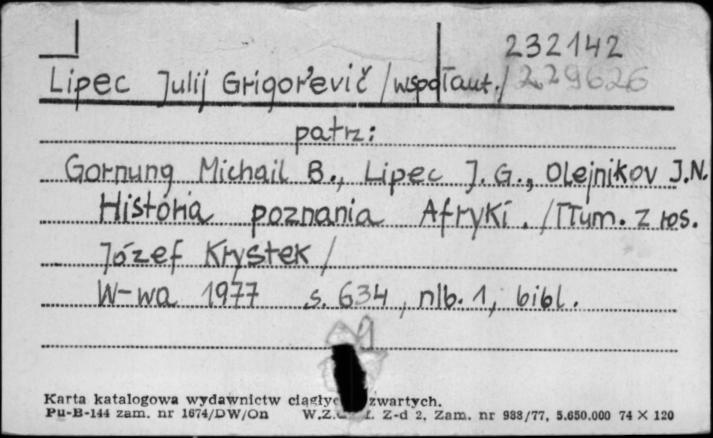 232142
Lipec Julij Grigor'evič /współaut./ 229626
patrz:
Gornung Michail B., Lipec J.G., Olejnikov J.N.
Historia poznania Afryki. /Tłum. z ros.
Józef Krystek/
W-wa 1977 s. 634, nlb. 1, bibl.
Karta katalogowa wydawnictw zwartych.
Pu-B-144 zam. nr 1674/DW/On Z-d 2, Zam. nr 988/77, 5.650.000 74 X 120